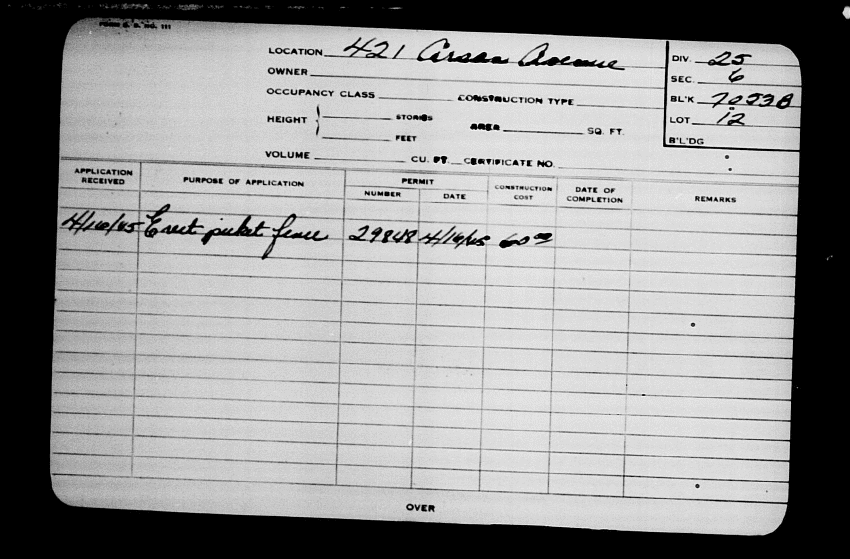 FORM C. D. NO. 111
LOCATION 421 Arsan Avenue
OWNER
OCCUPANCY CLASS CONSTRUCTION TYPE
HEIGHT STORIES
FEET
AREA SQ. FT.
VOLUME CU. FT. CERTIFICATE NO.
DIV. 25
SEC. 6
BL'K 7023B
LOT 12
B'L'DG
APPLICATION RECEIVED PURPOSE OF APPLICATION PERMIT NUMBER DATE CONSTRUCTION COST DATE OF COMPLETION REMARKS
4/16/45 Erect picket fence 29848 4/16/45 60.00
OVER